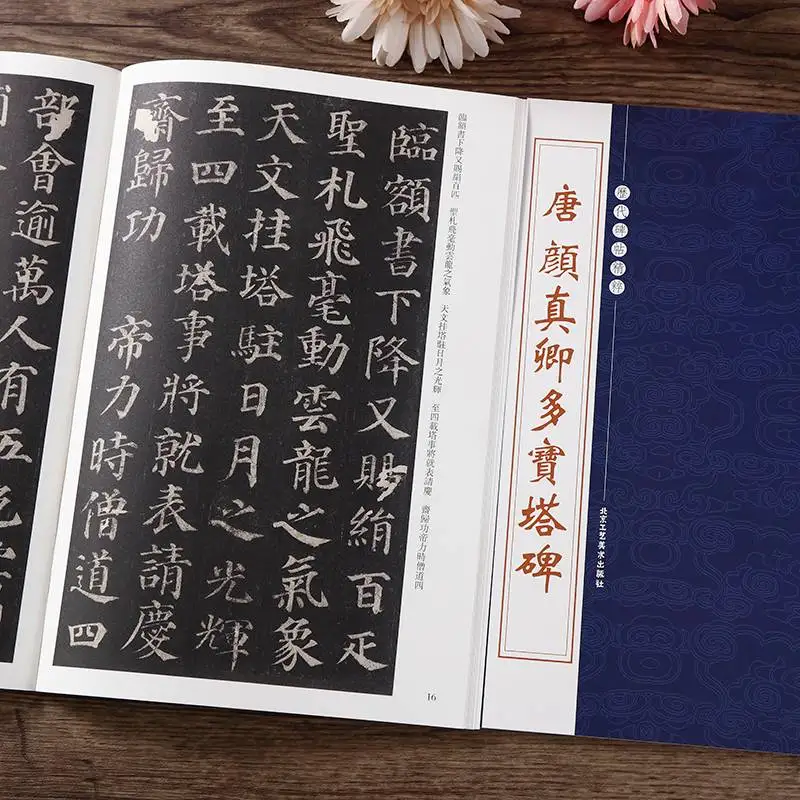 歷代碑帖精粹
唐 顏真卿多寶塔碑
北京工艺美术出版社
臨額書下降又賜絹百匹 聖札飛毫動雲龍之氣象 天文挂塔駐日月之光輝 至四載塔事將就表請慶 齋歸功帝力時僧道四
臨額書下降又賜絹百疋
聖札飛毫動雲龍之氣象
天文挂塔駐日月之光輝
至四載塔事將就表請慶
齋歸功 帝力時僧道四
16
部會逾萬人有五色